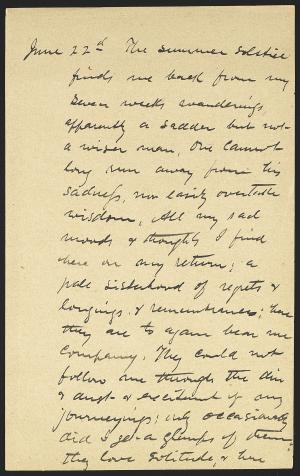 June 22d The summer solstice
finds me back from my
seven weeks wanderings,
apparently a sadder but not
a wiser man. One cannot
long run away from his
sadness, nor easily overtake
wisdom. All my sad
moods & thoughts I find
here on my return; a
pale sisterhood of regrets &
longings, & remembrances; here
they are to again bear me
company. They could not
follow me through the din
& dust & excitement of my
journeyings; only occasionally
did I get a glimps of them;
they love solitude, & here